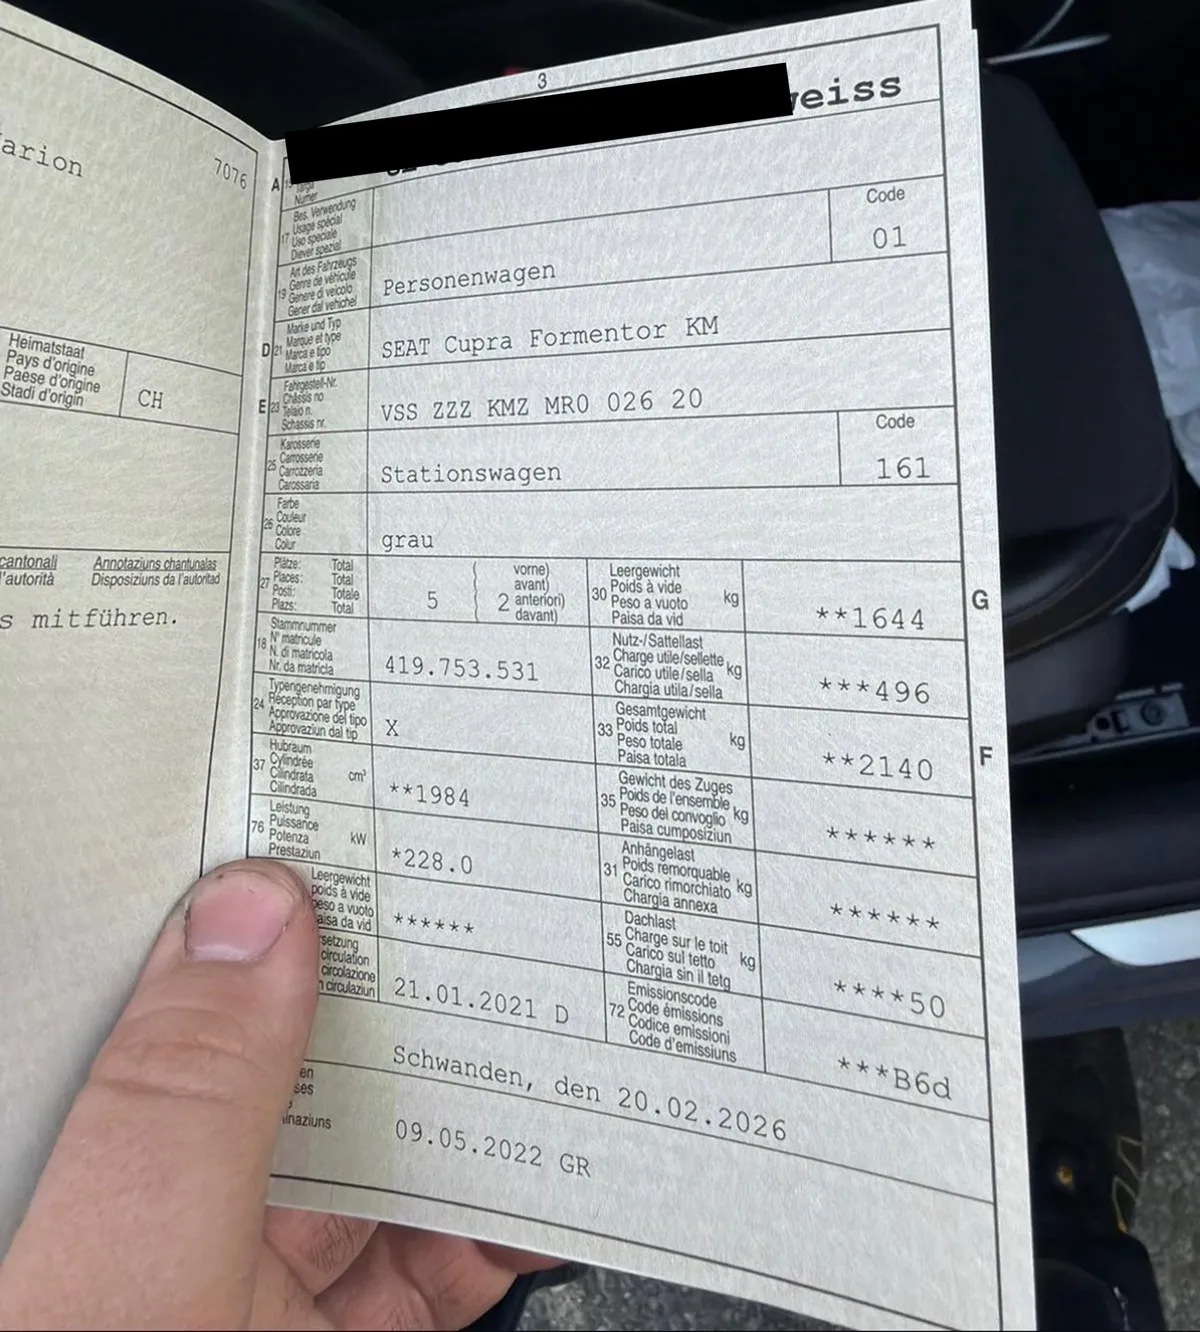 arion
7076
Heimatstaat
Pays d'origine
Paese d'origine
Stadi d'origin
CH
cantonali
l'autorità
Annotaziuns chantunalas
Disposiziuns da l'autoritad
s mitführen.
3
weiss
A
Targa
Numer
17
Bes. Verwendung
Usage spécial
Uso speciale
Diever spezial
Code
01
19
Art des Fahrzeugs
Genre de véhicule
Genere di veicolo
Gener dal vehichel
Personenwagen
D 21
Marke und Typ
Marque et type
Marca e tipo
Marca e tip
SEAT Cupra Formentor KM
E 23
Fahrgestell-Nr.
Châssis no
Telaio n.
Schassis nr.
VSS ZZZ KMZ MR0 026 20
25
Karosserie
Carrosserie
Carrozzeria
Carossaria
Stationswagen
Code
161
26
Farbe
Couleur
Colore
Colur
grau
27
Plätze: Total
Places: Total
Posti: Totale
Plazs: Total
5
2
vorne)
avant)
anteriori)
davant)
30
Leergewicht
Poids à vide
Peso a vuoto
Paisa da vid
kg
**1644
G
18
Stammnummer
N° matricule
N. di matricola
Nr. da matricla
419.753.531
32
Nutz-/Sattellast
Charge utile/sellette
Carico utile/sella
Chargia utila/sella
kg
***496
24
Typengenehmigung
Réception par type
Approvazione del tipo
Approvaziun dal tip
X
33
Gesamtgewicht
Poids total
Peso totale
Paisa totala
kg
**2140
F
37
Hubraum
Cylindrée
Cilindrata
Cilindrada
cm³
**1984
35
Gewicht des Zuges
Poids de l'ensemble
Peso del convoglio
Paisa cumposiziun
kg
******
76
Leistung
Puissance
Potenza
Prestaziun
kW
*228.0
31
Anhängelast
Poids remorquable
Carico rimorchiato
Chargia annexa
kg
******
Leergewicht
poids à vide
peso a vuoto
aisa da vid
******
55
Dachlast
Charge sur le toit
Carico sul tetto
Chargia sin il tetg
kg
****50
rsetzung
circulation
circolazione
n circulaziun
21.01.2021 D
72
Emissionscode
Code émissions
Codice emissioni
Code d'emissiuns
***B6d
Schwanden, den 20.02.2026
en
ses
inaziuns
09.05.2022 GR